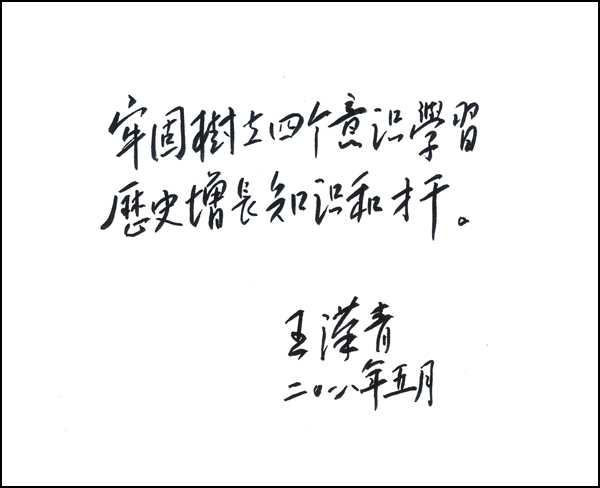 牢固樹立四个意识學習
歷史增長知识和才干。
王漢青
二〇一八年五月